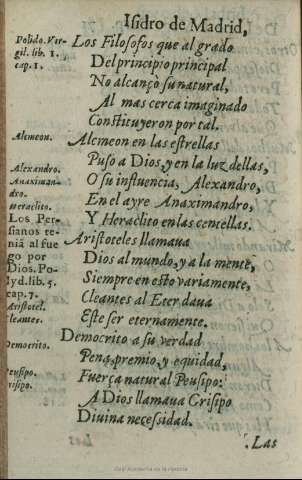 Isidro de Madrid,
Polido. Ver-
gil. lib. 1.
cap. 1.
Los Filosofos que al grado
Del principio principal
No alcançò su natural,
Al mas cerca imaginado
Constituyeron por tal.
Alcmeon.
Alcmeon en las estrellas
Puso a Dios, y en la luz dellas,
Alexandro.
O su influencia, Alexandro,
Anaximan-
dro.
En el ayre Anaximandro,
Heraclito.
Y Heraclito en las centellas.
Los Per-
sianos te-
niā al fue
go por
Dios. Po-
lyd. lib. 5.
cap. 7.
Aristoteles llamava
Dios al mundo, y a la mente,
Siempre en esto variamente,
Aristotel.
Cleantes.
Cleantes al Eter dava
Este ser eternamente.
Democrito.
Democrito a su verdad
Pena, premio, y equidad,
Peusipo.
Fuerça natural Peusipo:
Crisipo.
A Dios llamava Crisipo
Divina necessidad.
Las
Real Academia de la Historia